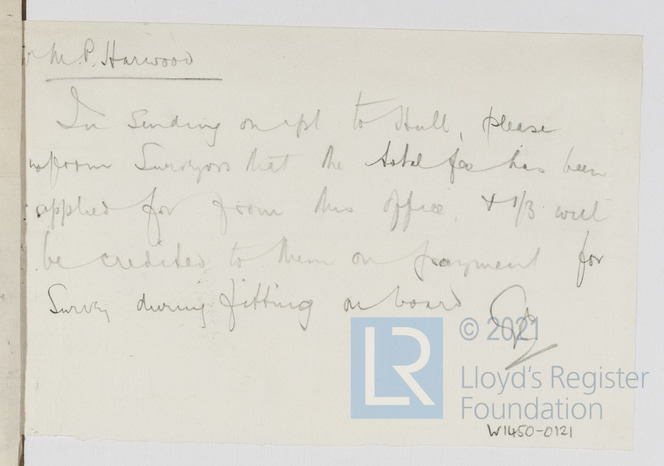 M.P. Harwood
In sending on rpt to Hull, please
inform Surveyors that the total fee has been
applied for from this office, + 1/3 will
be credited to them on payment for
Survey during fitting on board
LR
© 2021
Lloyd's Register
Foundation
W1450-0121